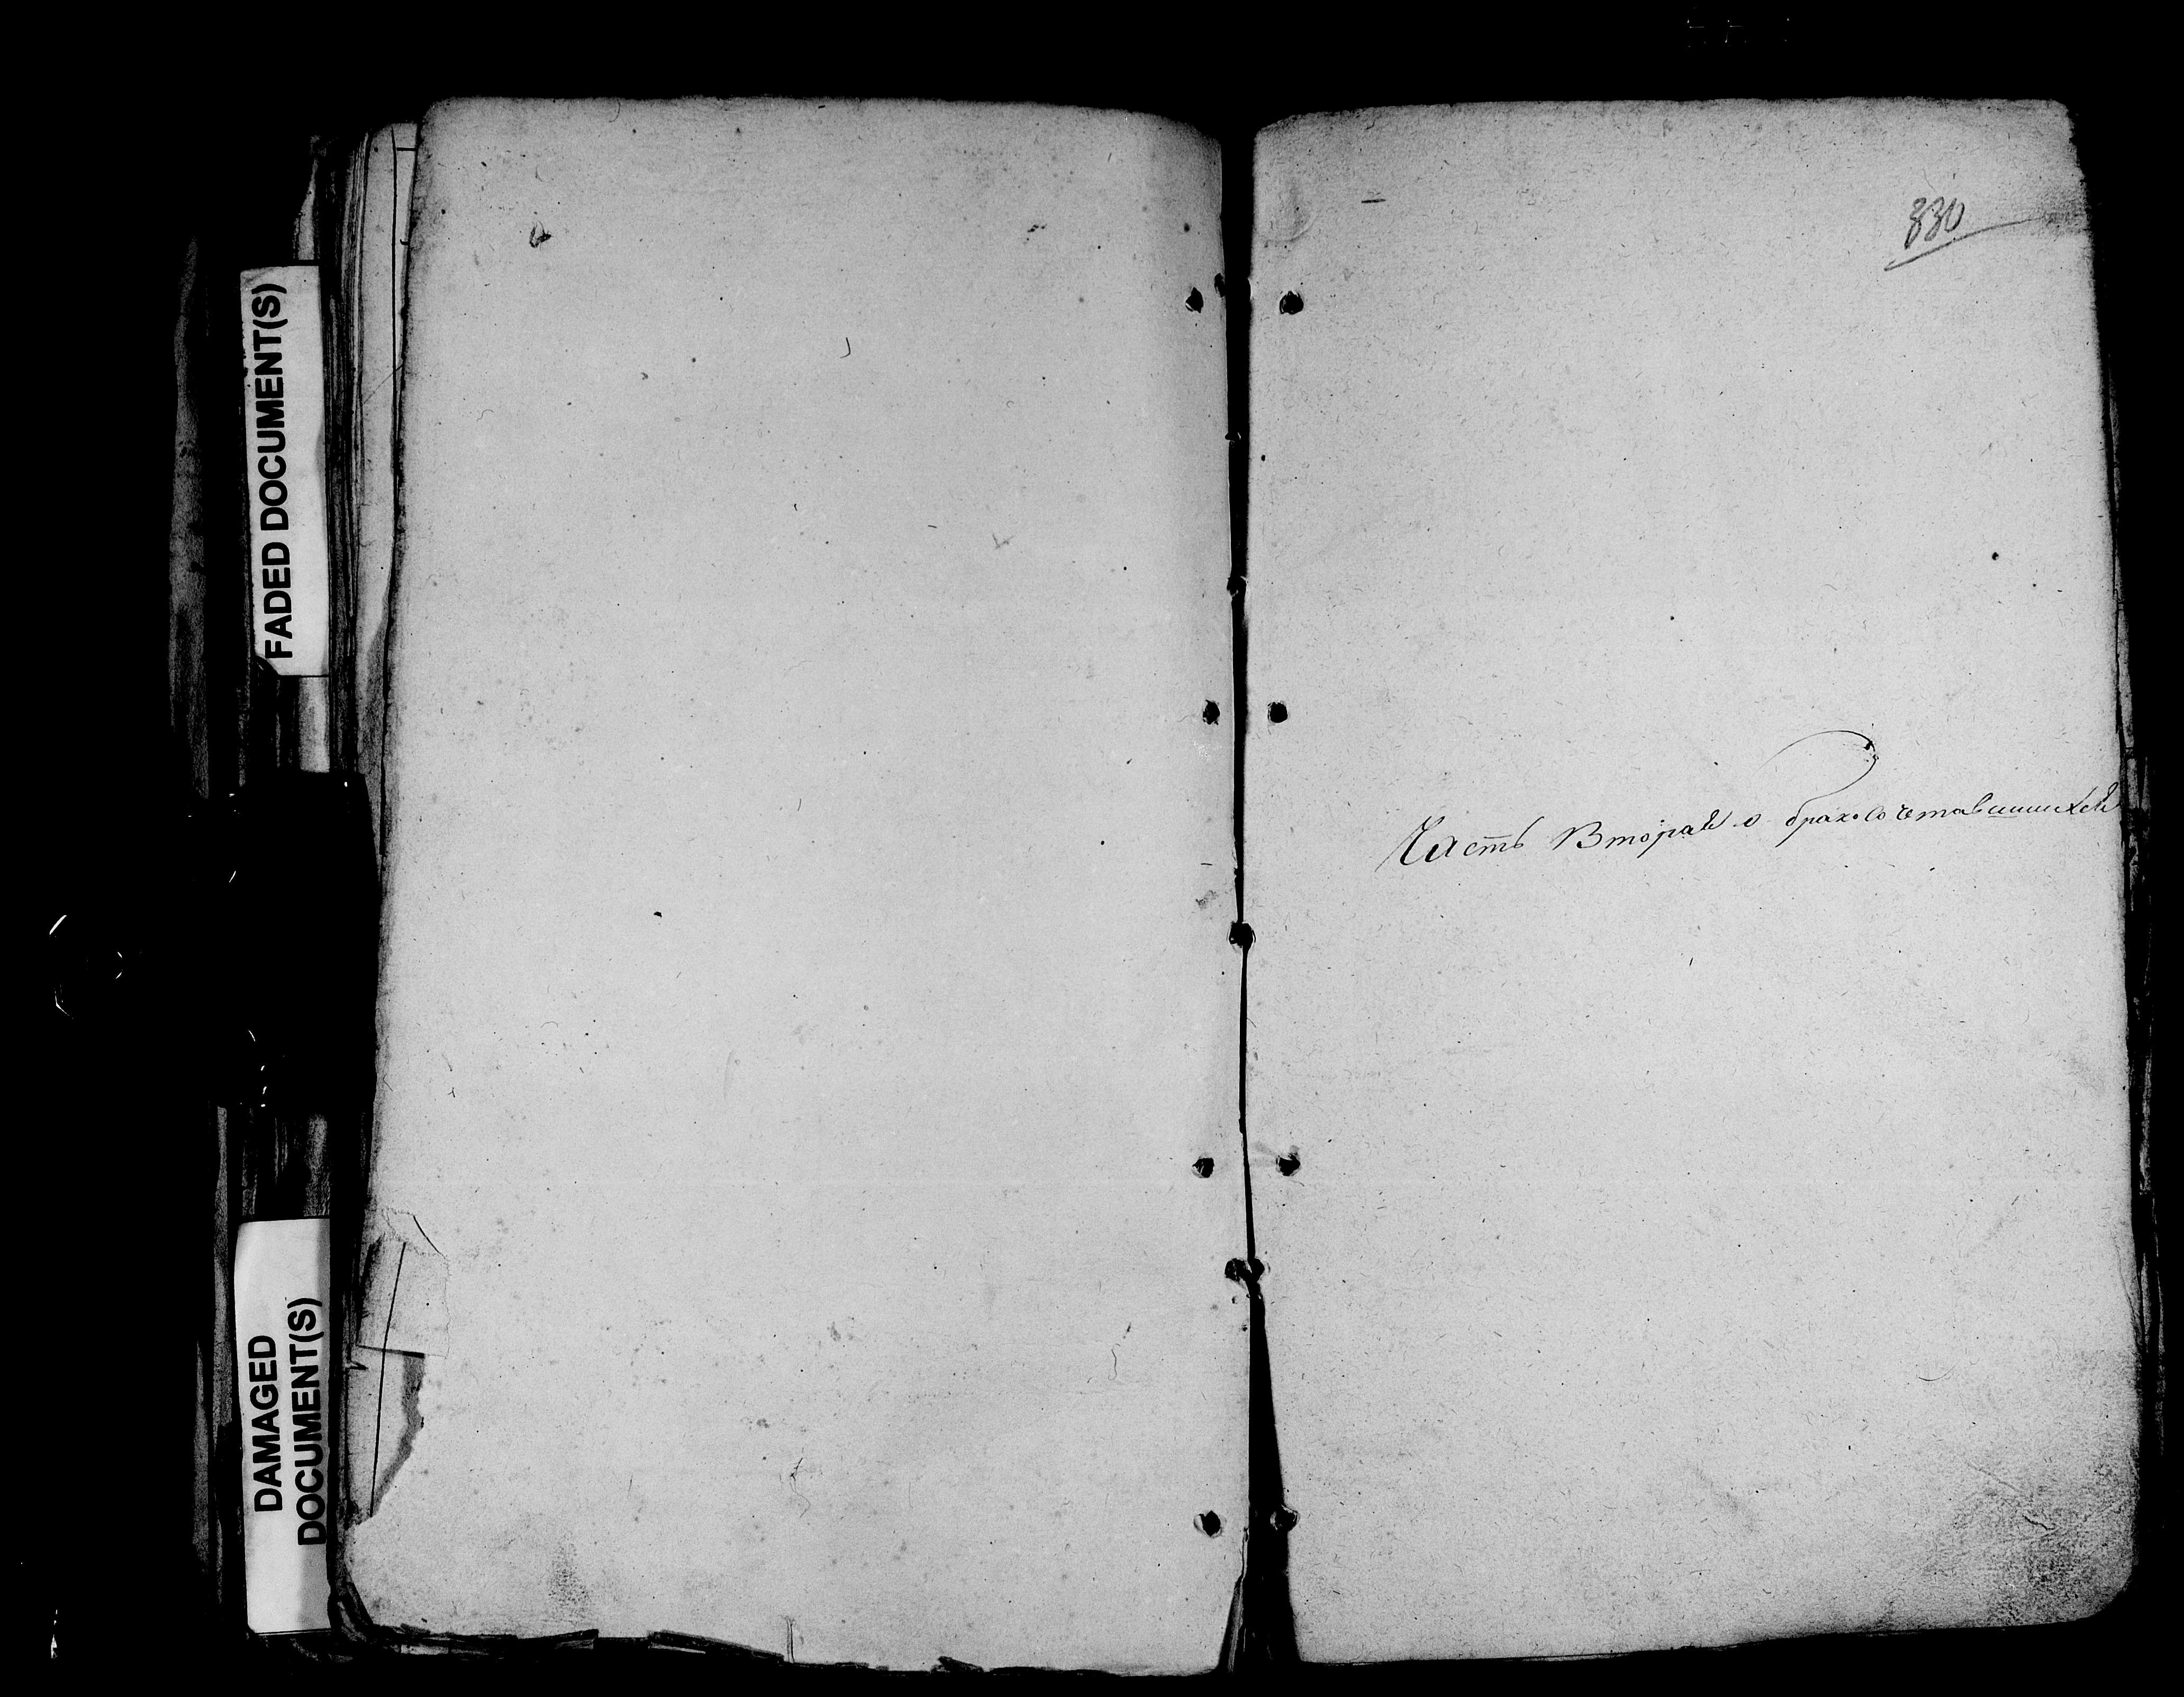 FADED DOCUMENT(S)
DAMAGED
DOCUMENT(S)
330
Часть Вторая о бракосочетавшихся